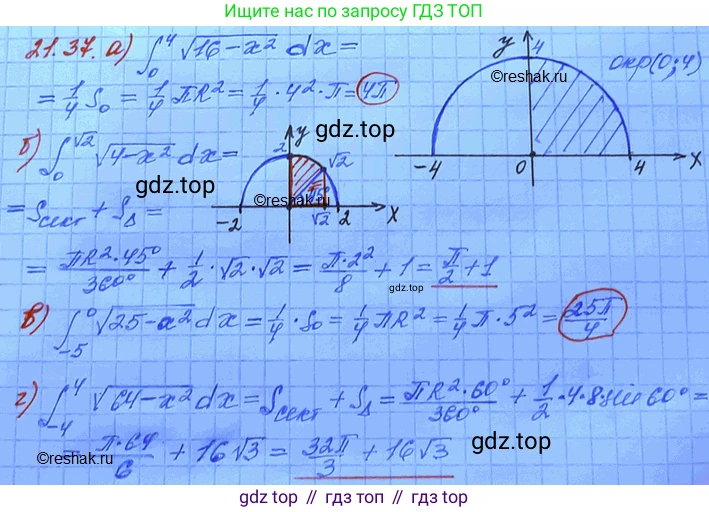 Ищите нас по запросу ГДЗ ТОП
21.37. а) ∫₀⁴ √(16-x²) dx =
= 1/4 S₀ = 1/4 πR² = 1/4 · 4² · π = 4π
©reshak.ru
y
4
окр(0;4)
-4 0 4 x
б) ∫₀^√2 √(4-x²) dx =
gdz.top
2 y √2
45°
-2 √2 2 x
©reshak.ru
gdz.top
= Sсект + S△ =
= πR²·45°/360° + 1/2 · √2 · √2 = π·2²/8 + 1 = π/2 + 1
gdz.top
в) ∫₋₅⁰ √(25-x²) dx = 1/4 · S₀ = 1/4 πR² = 1/4 π · 5² = 25π/4
г) ∫₋₄⁴ √(64-x²) dx = Sсект + S△ = πR²·60°/360° + 1/2 · 4 · 8 sin 60° =
= π·64/6 + 16√3 = 32π/3 + 16√3
©reshak.ru
gdz.top
gdz top // гдз топ // gdz top